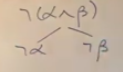 ¬(α∧β)
¬α ¬β